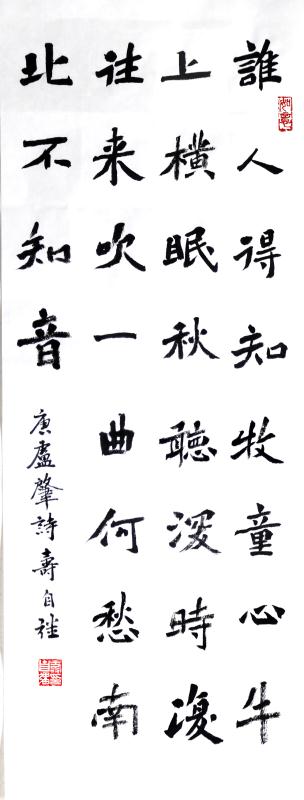 誰人得知牧童心牛
上橫眠秋聽深時復
往来吹一曲何愁南
北不知音
唐盧肇詩壽自